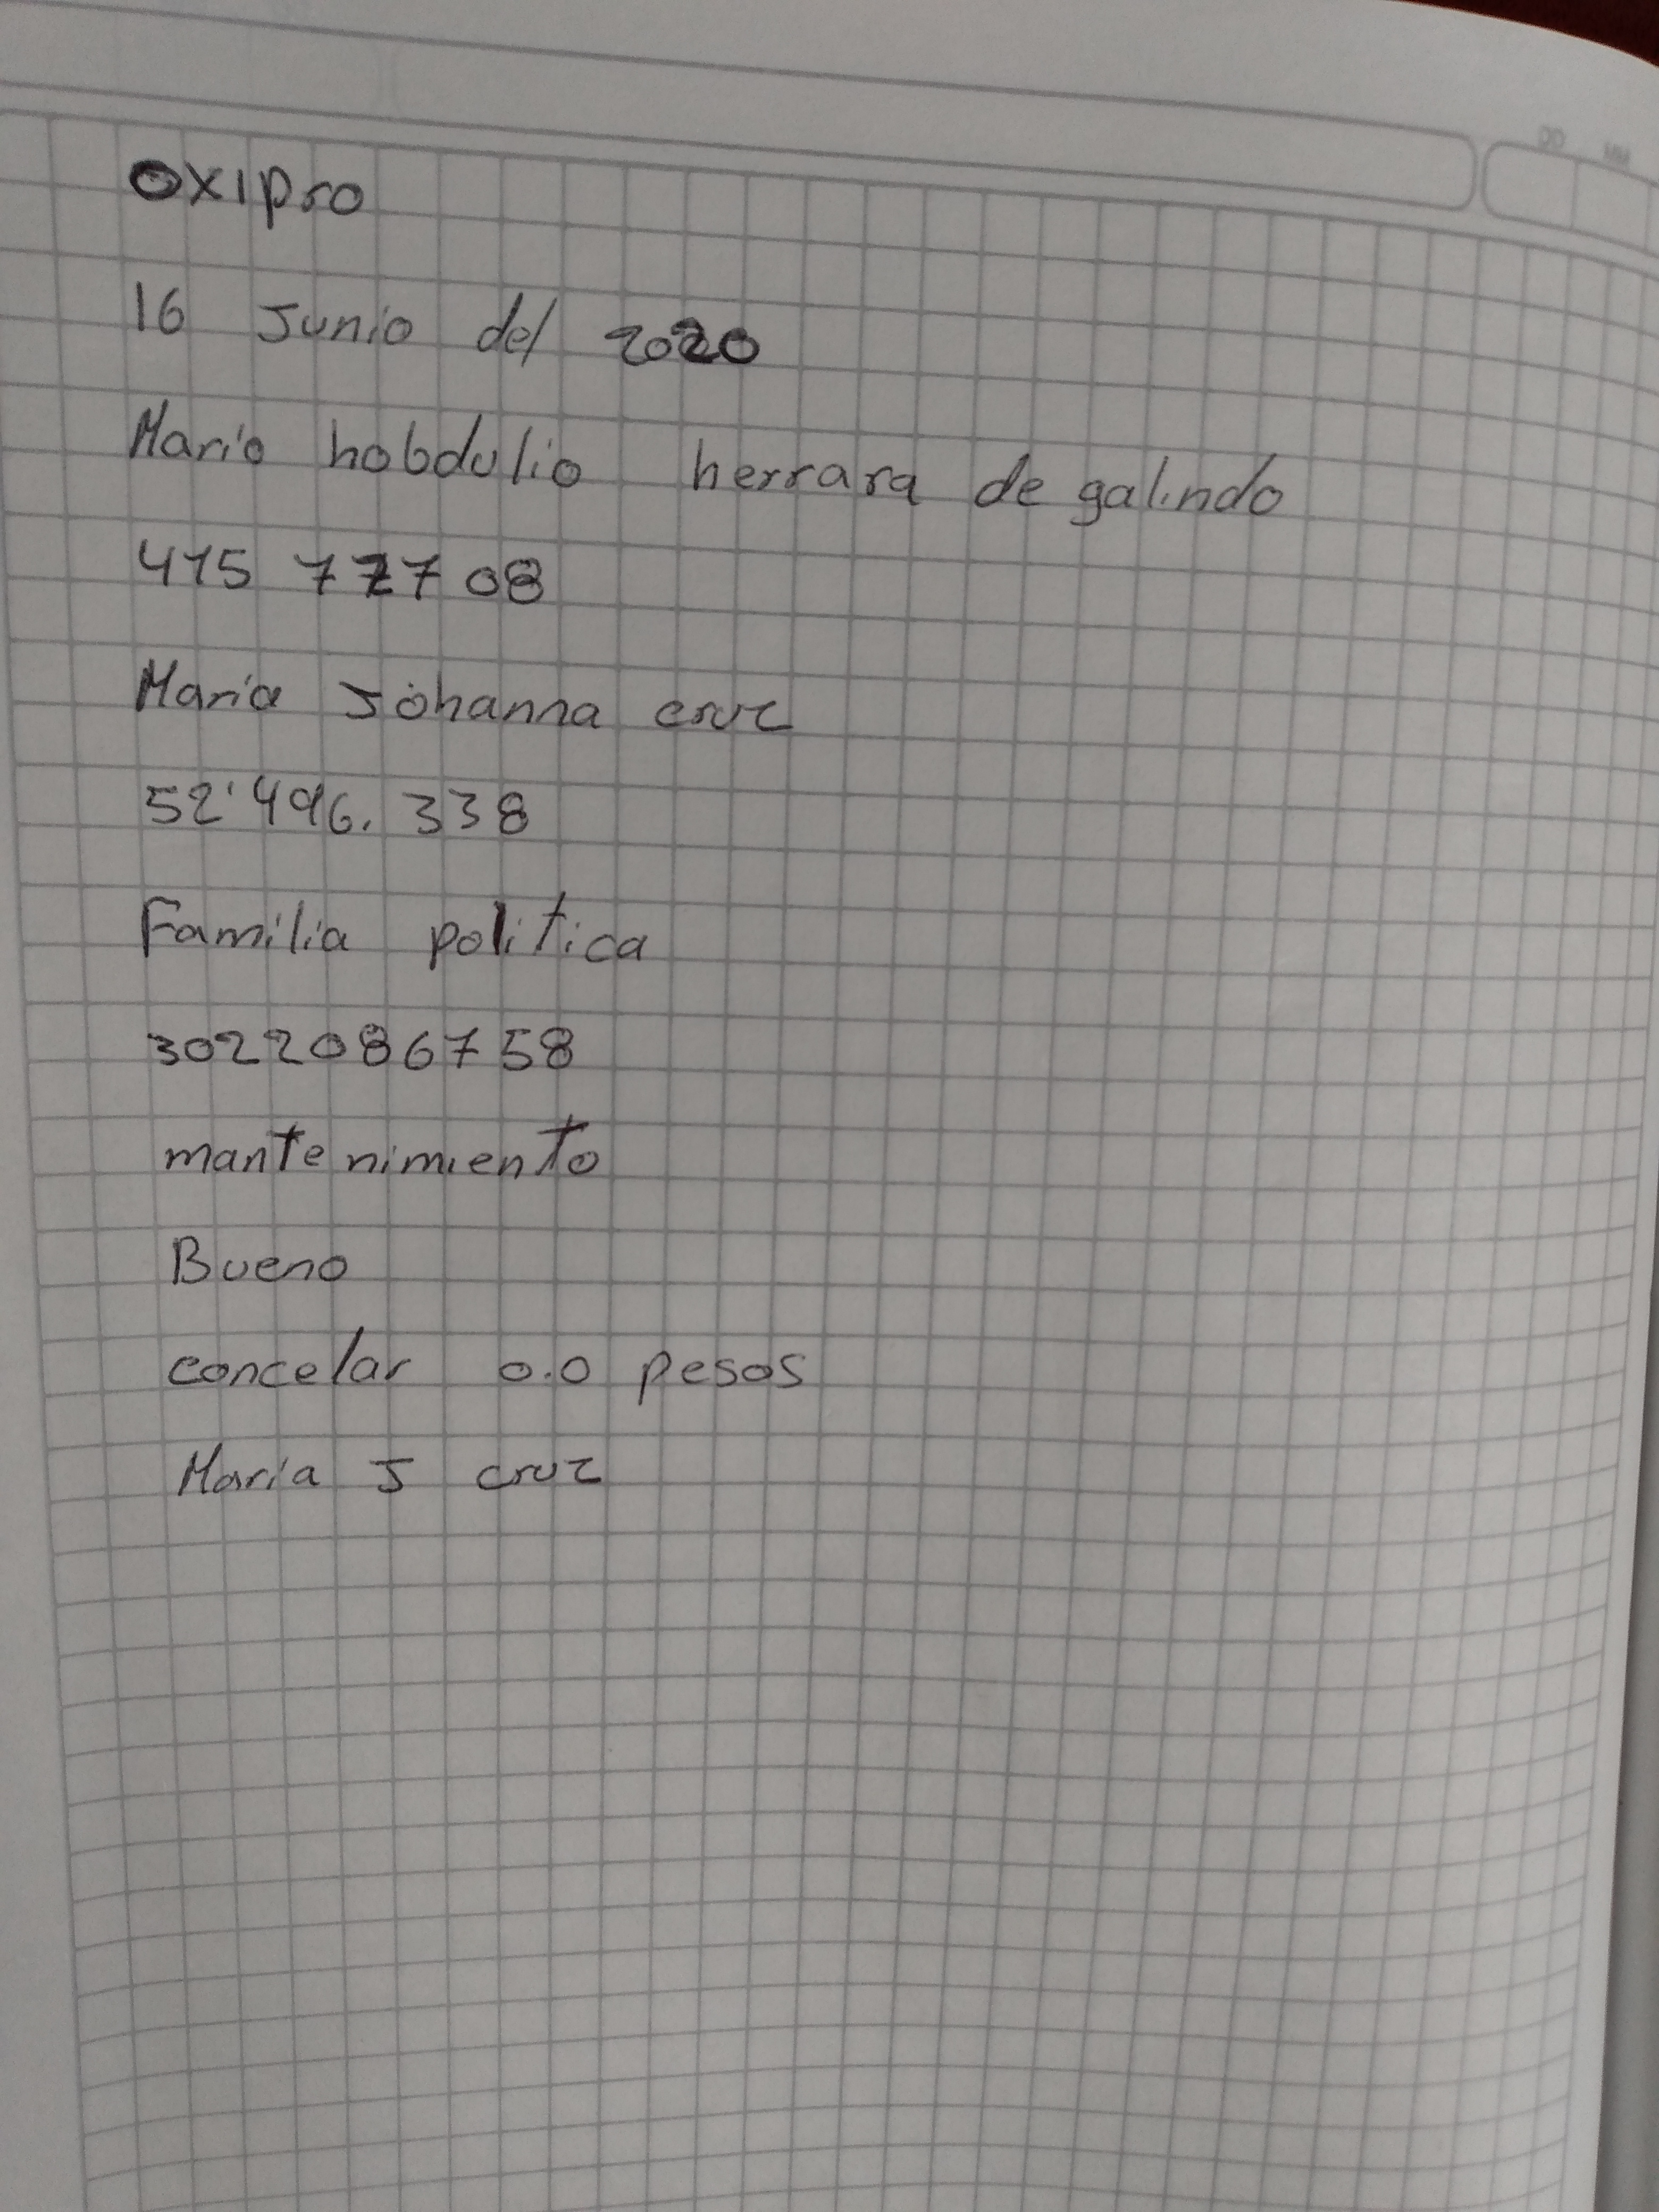 oxipro
16 Junio del 2020
Mario hobdulio herrara de galindo
415 777 08
Maria Johanna cruz
52'496.338
Familia politica
3022086758
mantenimiento
Bueno
concelar 0.0 pesos
Maria J cruz
DD MM